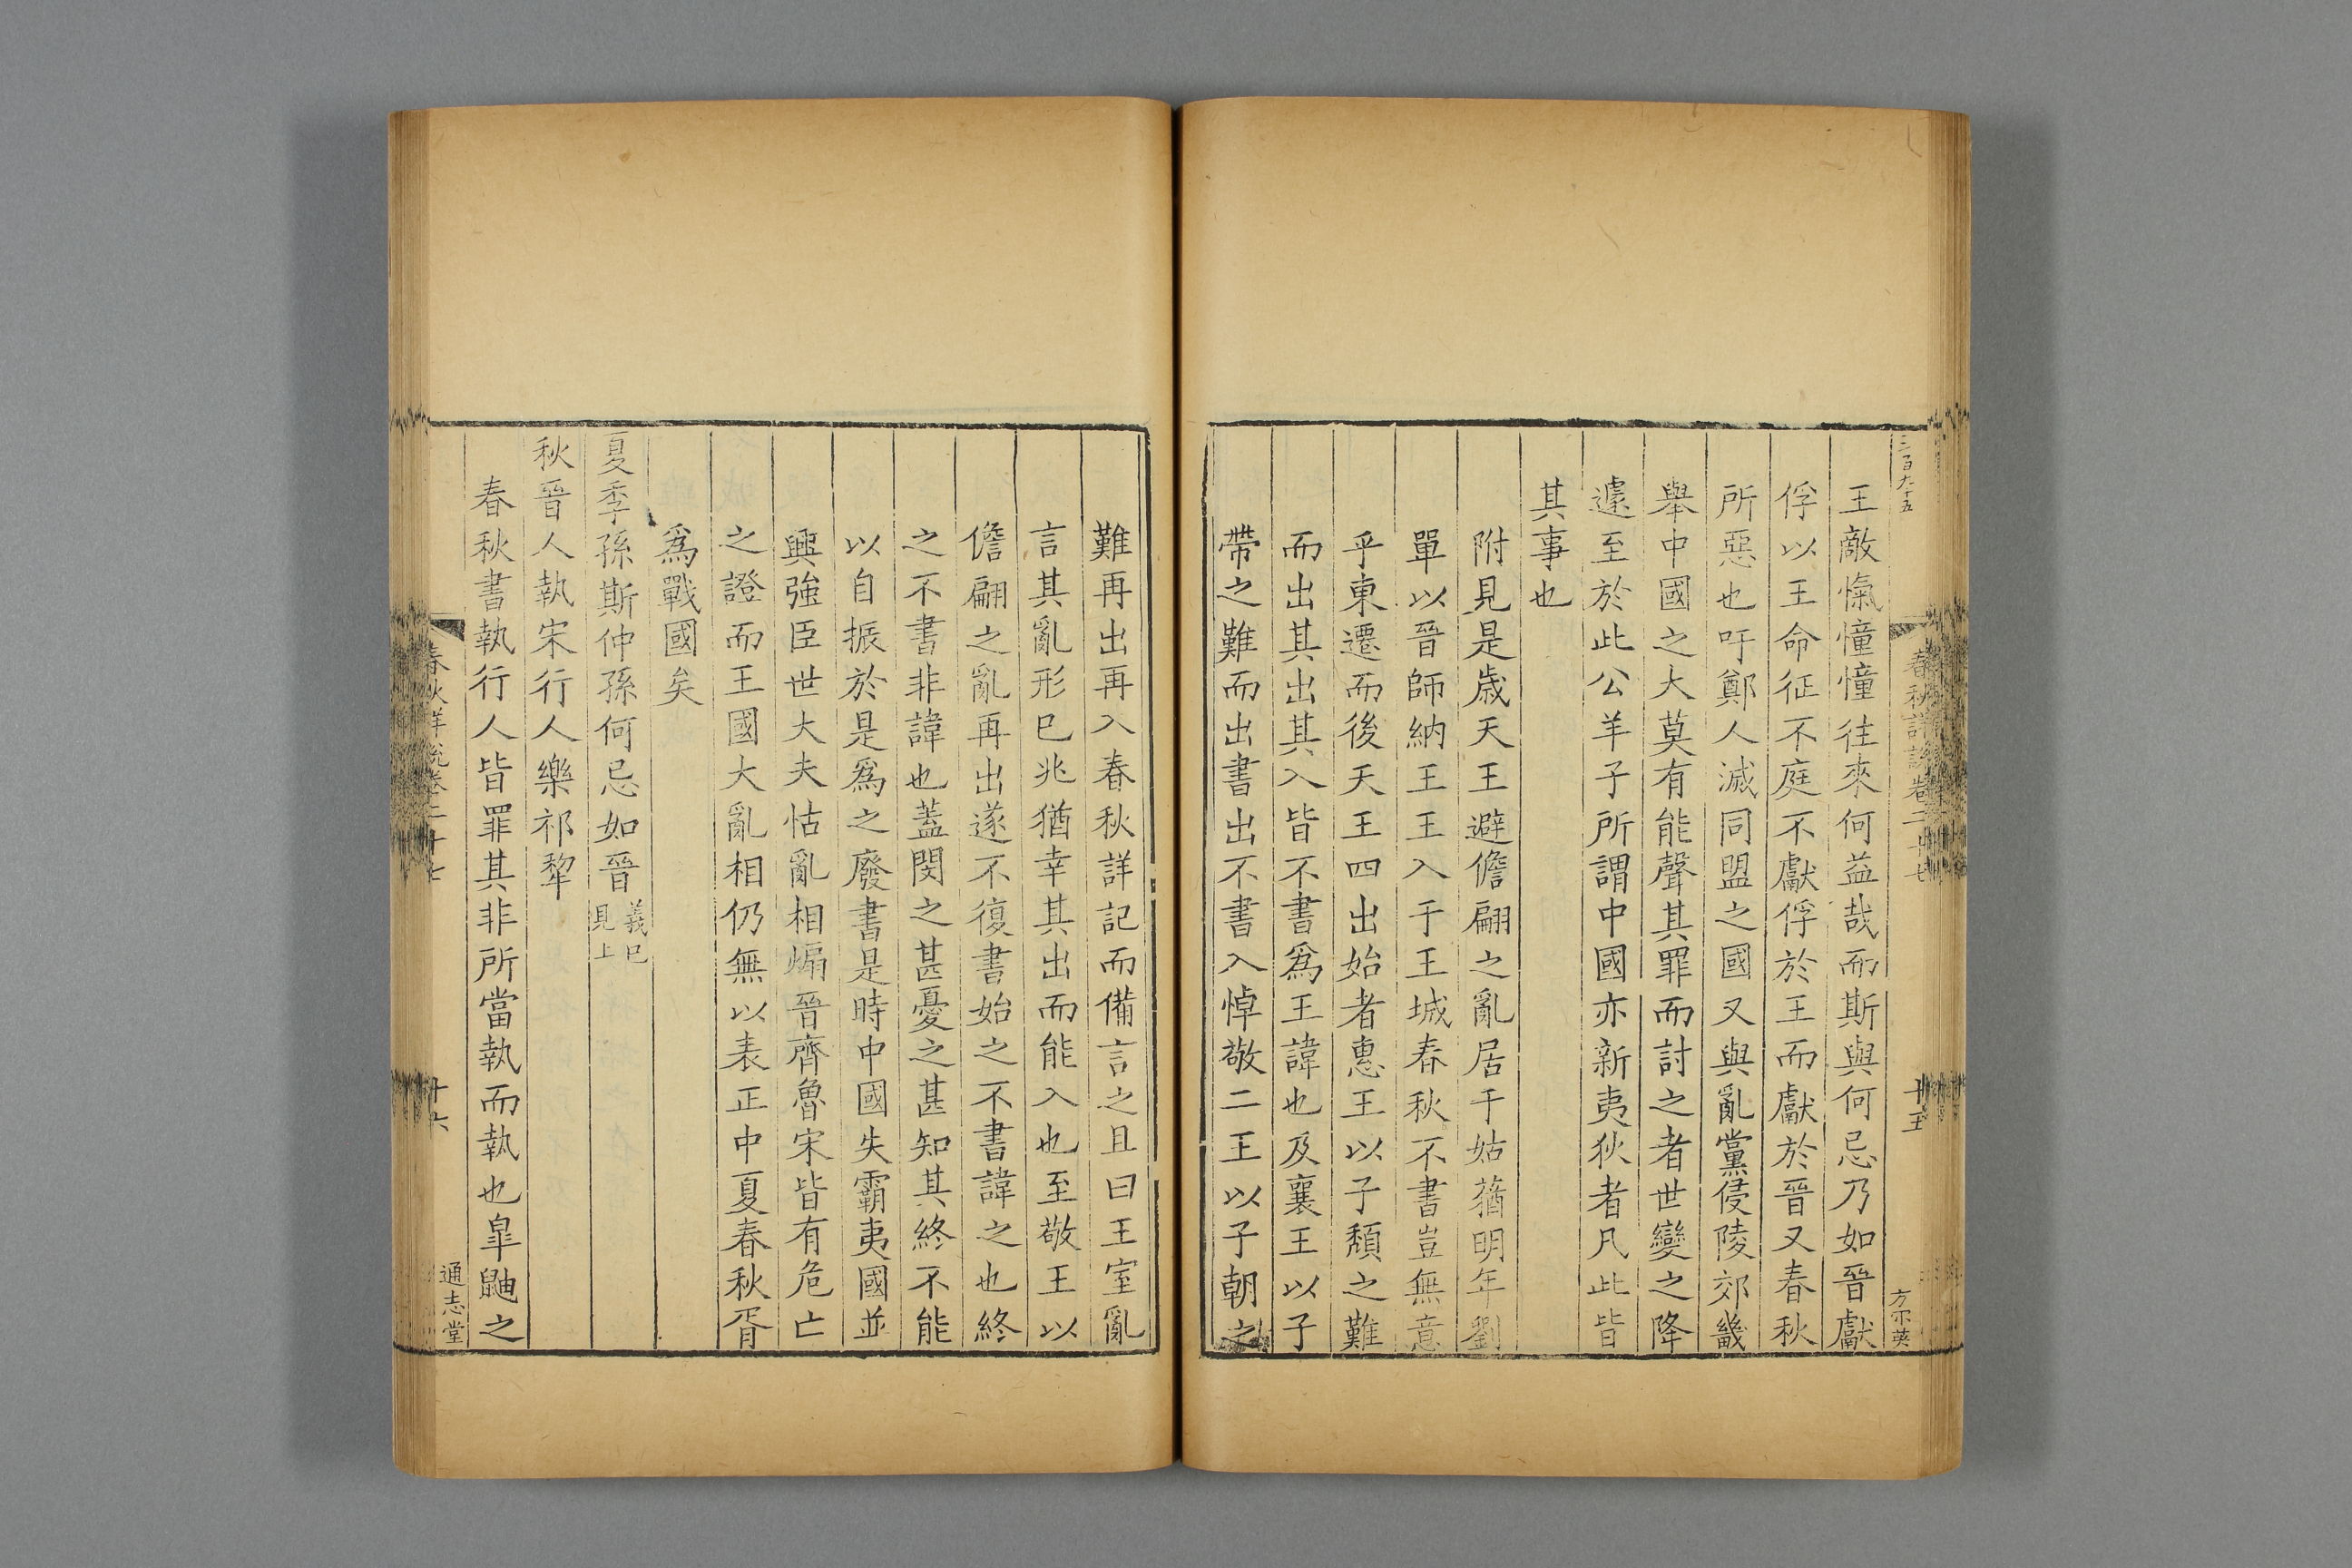 三百九十五
春秋詳說卷二十七
十五
方宗英
王敵愾憧憧往來何益哉而斯與何忌乃如晉獻
俘以王命征不庭不獻俘於王而獻於晉又春秋
所惡也吁鄭人滅同盟之國又與亂黨侵陵郊畿
舉中國之大莫有能聲其罪而討之者世變之降
遽至於此公羊子所謂中國亦新夷狄者凡此皆
其事也
附見是歳天王避儋翩之亂居于姑蕕明年劉
單以晉師納王王入于王城春秋不書豈無意
乎東遷而後天王四出始者惠王以子頹之難
而出其出其入皆不書爲王諱也及襄王以子
帶之難而出書出不書入悼敬二王以子朝之
難再出再入春秋詳記而備言之且曰王室亂
言其亂形已兆猶幸其出而能入也至敬王以
儋翩之亂再出遂不復書始之不書諱之也終
之不書非諱也蓋閔之甚憂之甚知其終不能
以自振於是爲之廢書是時中國失霸夷國並
興強臣世大夫怙亂相煽晉齊魯宋皆有危亡
之證而王國大亂相仍無以表正中夏春秋胥
爲戰國矣
夏季孫斯仲孫何忌如晉義已見上
秋晉人執宋行人樂祁犂
春秋書執行人皆罪其非所當執而執也皐鼬之
春秋詳說卷二十七
十六
通志堂